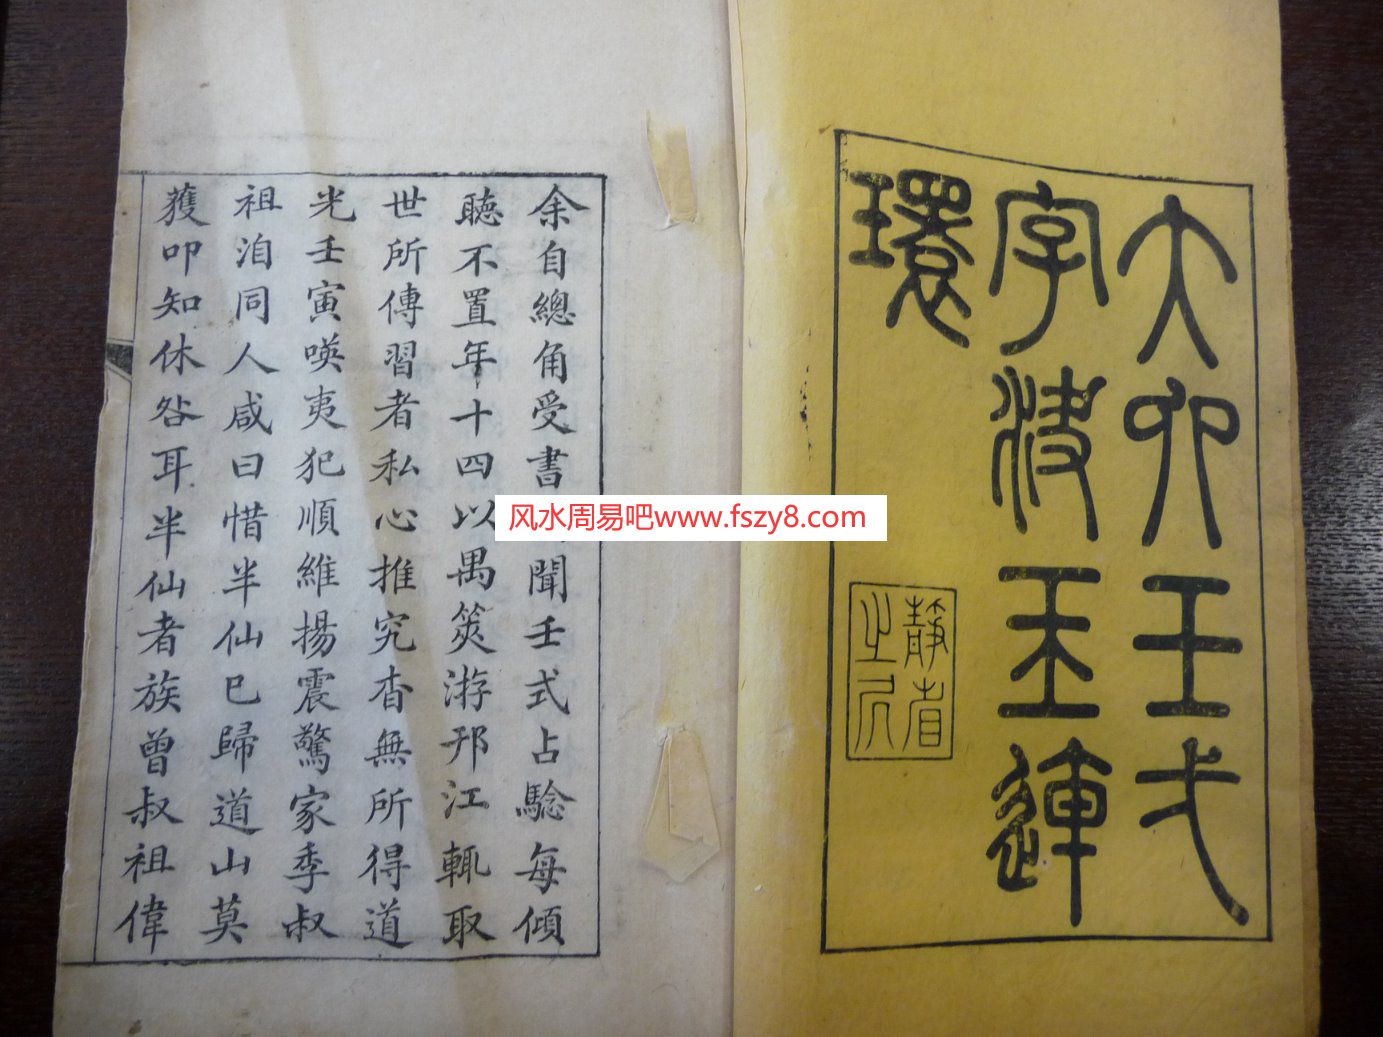 大六壬弌
字決玉連
環
靜者
余自總角受書聞壬式占騐每傾
聽不置年十四以禺筴游邗江輒取
世所傳習者私心推究杳無所得道
光壬寅𠸄夷犯順維揚震驚家季叔
祖洎同人咸曰惜半仙已歸道山莫
獲叩知休咎耳半仙者族曾叔祖偉
风水周易吧www.fszy8.com